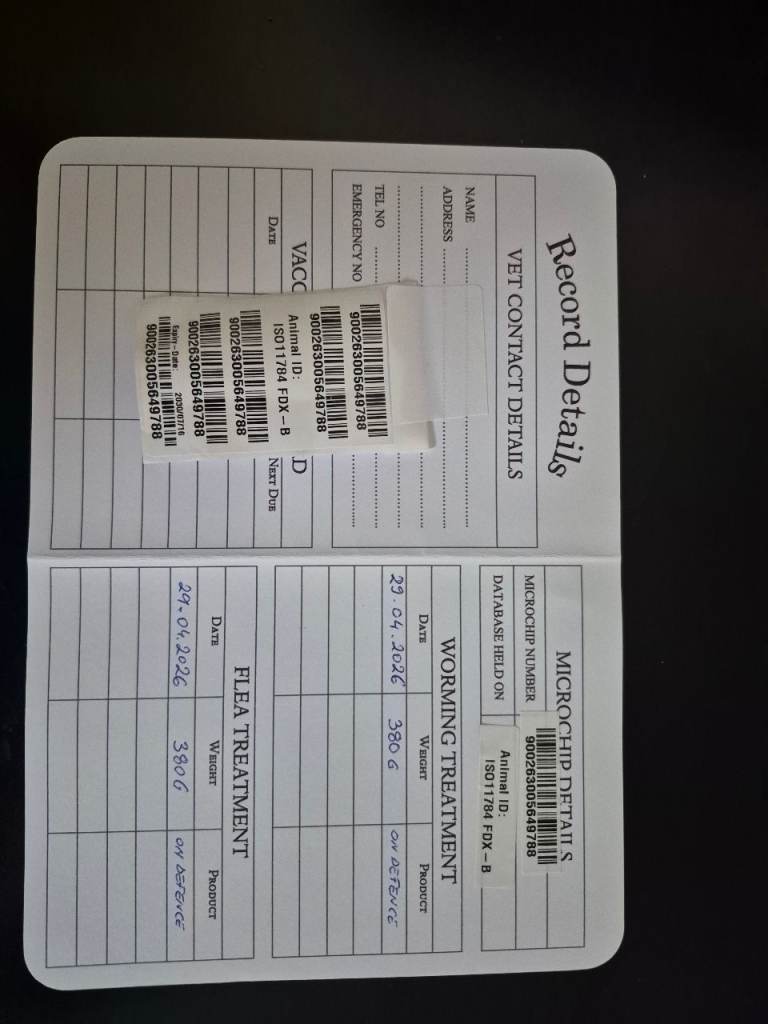 Record Details
VET CONTACT DETAILS
NAME
ADDRESS
TEL NO
EMERGENCY NO
900263005649788
900263005649788
Animal ID:
ISO11784 FDX-B
900263005649788
900263005649788
Expiry-Date: 2030/07/16
900263005649788
VACC D
DATE NEXT DUE
MICROCHIP DETAILS
MICROCHIP NUMBER 900263005649788
DATABASE HELD ON Animal ID:
ISO11784 FDX-B
WORMING TREATMENT
DATE WEIGHT PRODUCT
29.04.2026 380 G ON DEFENCE
FLEA TREATMENT
DATE WEIGHT PRODUCT
29.04.2026 380 G ON DEFENCE